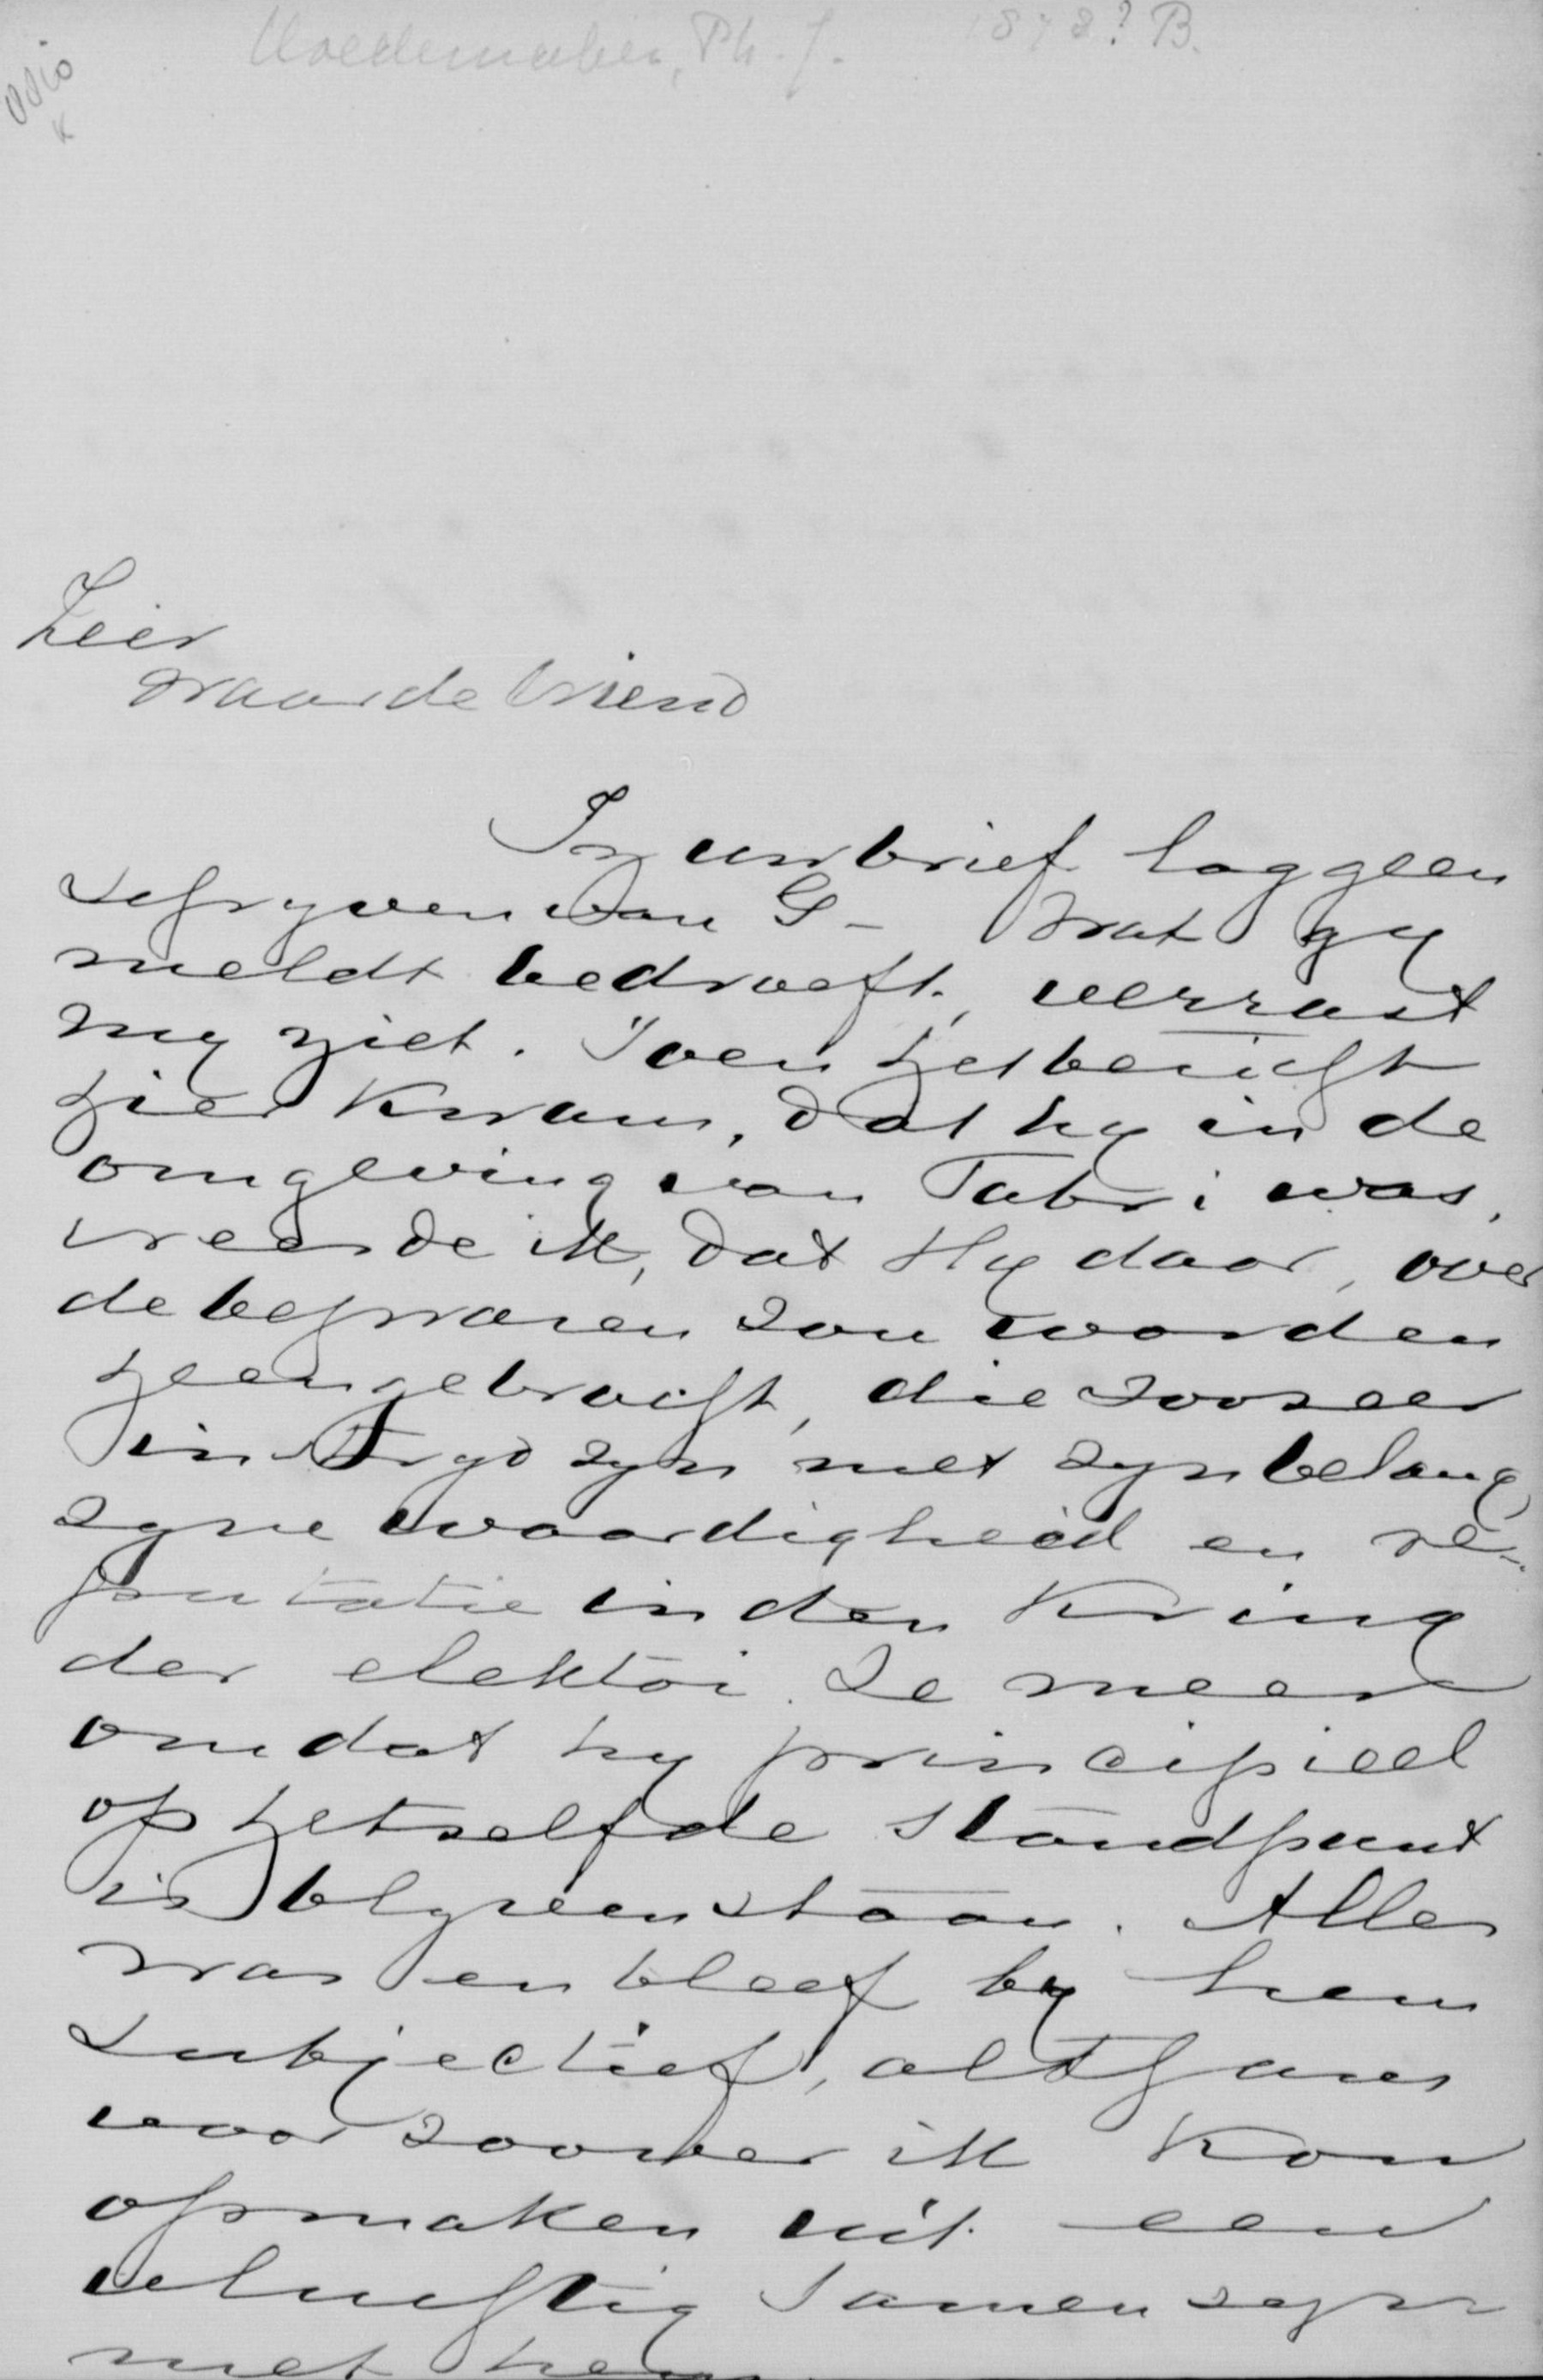 Hoedemaker, Ph. J. 1878? B.
Zeer
waarde Vriend
In uw brief lag geen
schryven van G - Wat gy
meldt bedroeft, verrast
my niet. Toen het bericht
hier kwam, dat hy in de
omgeving van Fabri was,
vreesde ik, dat Hy daar, over
de bezwaren zou worden
heengebracht, die zoozeer
in stryd zyn met zyn belang,
zyne waardigheid en re-
putatie in den Kring
der elektoi. Te meer
omdat hy principieel
op hetzelfde standpunt
is blyven staan. Alles
was en bleef by hem
subjectief, althans
voor zoover ik Kon
opmaken uit een
vluchtig samenzyn
met hem.